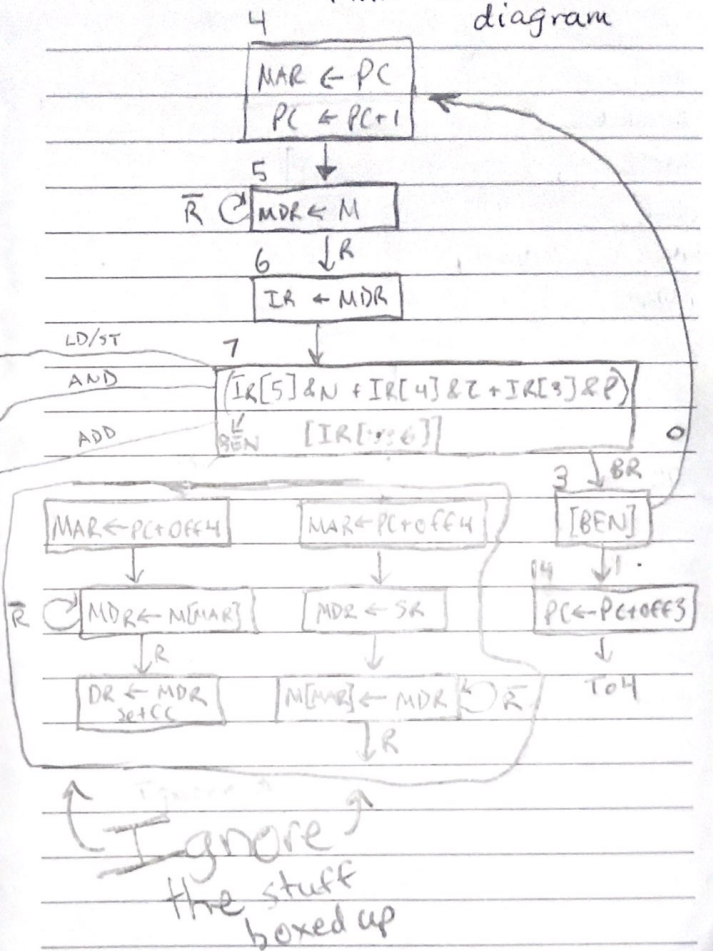 diagram
4
MAR ← PC
PC ← PC+1
5
R̅ MDR ← M
R
6
IR ← MDR
LD/ST
7
AND
(IR[5]&N + IR[4]&Z + IR[3]&P)
ADD
BEN
0
BR
3
MAR←PC+OFF4
MAR←PC+OFF4
[BEN]
14
1
R̅ MDR←M[MAR]
MDR ← SR
PC←PC+OFF3
R
DR ← MDR
set CC
M[MAR] ← MDR R̅
To 4
R
Ignore
the stuff
boxed up